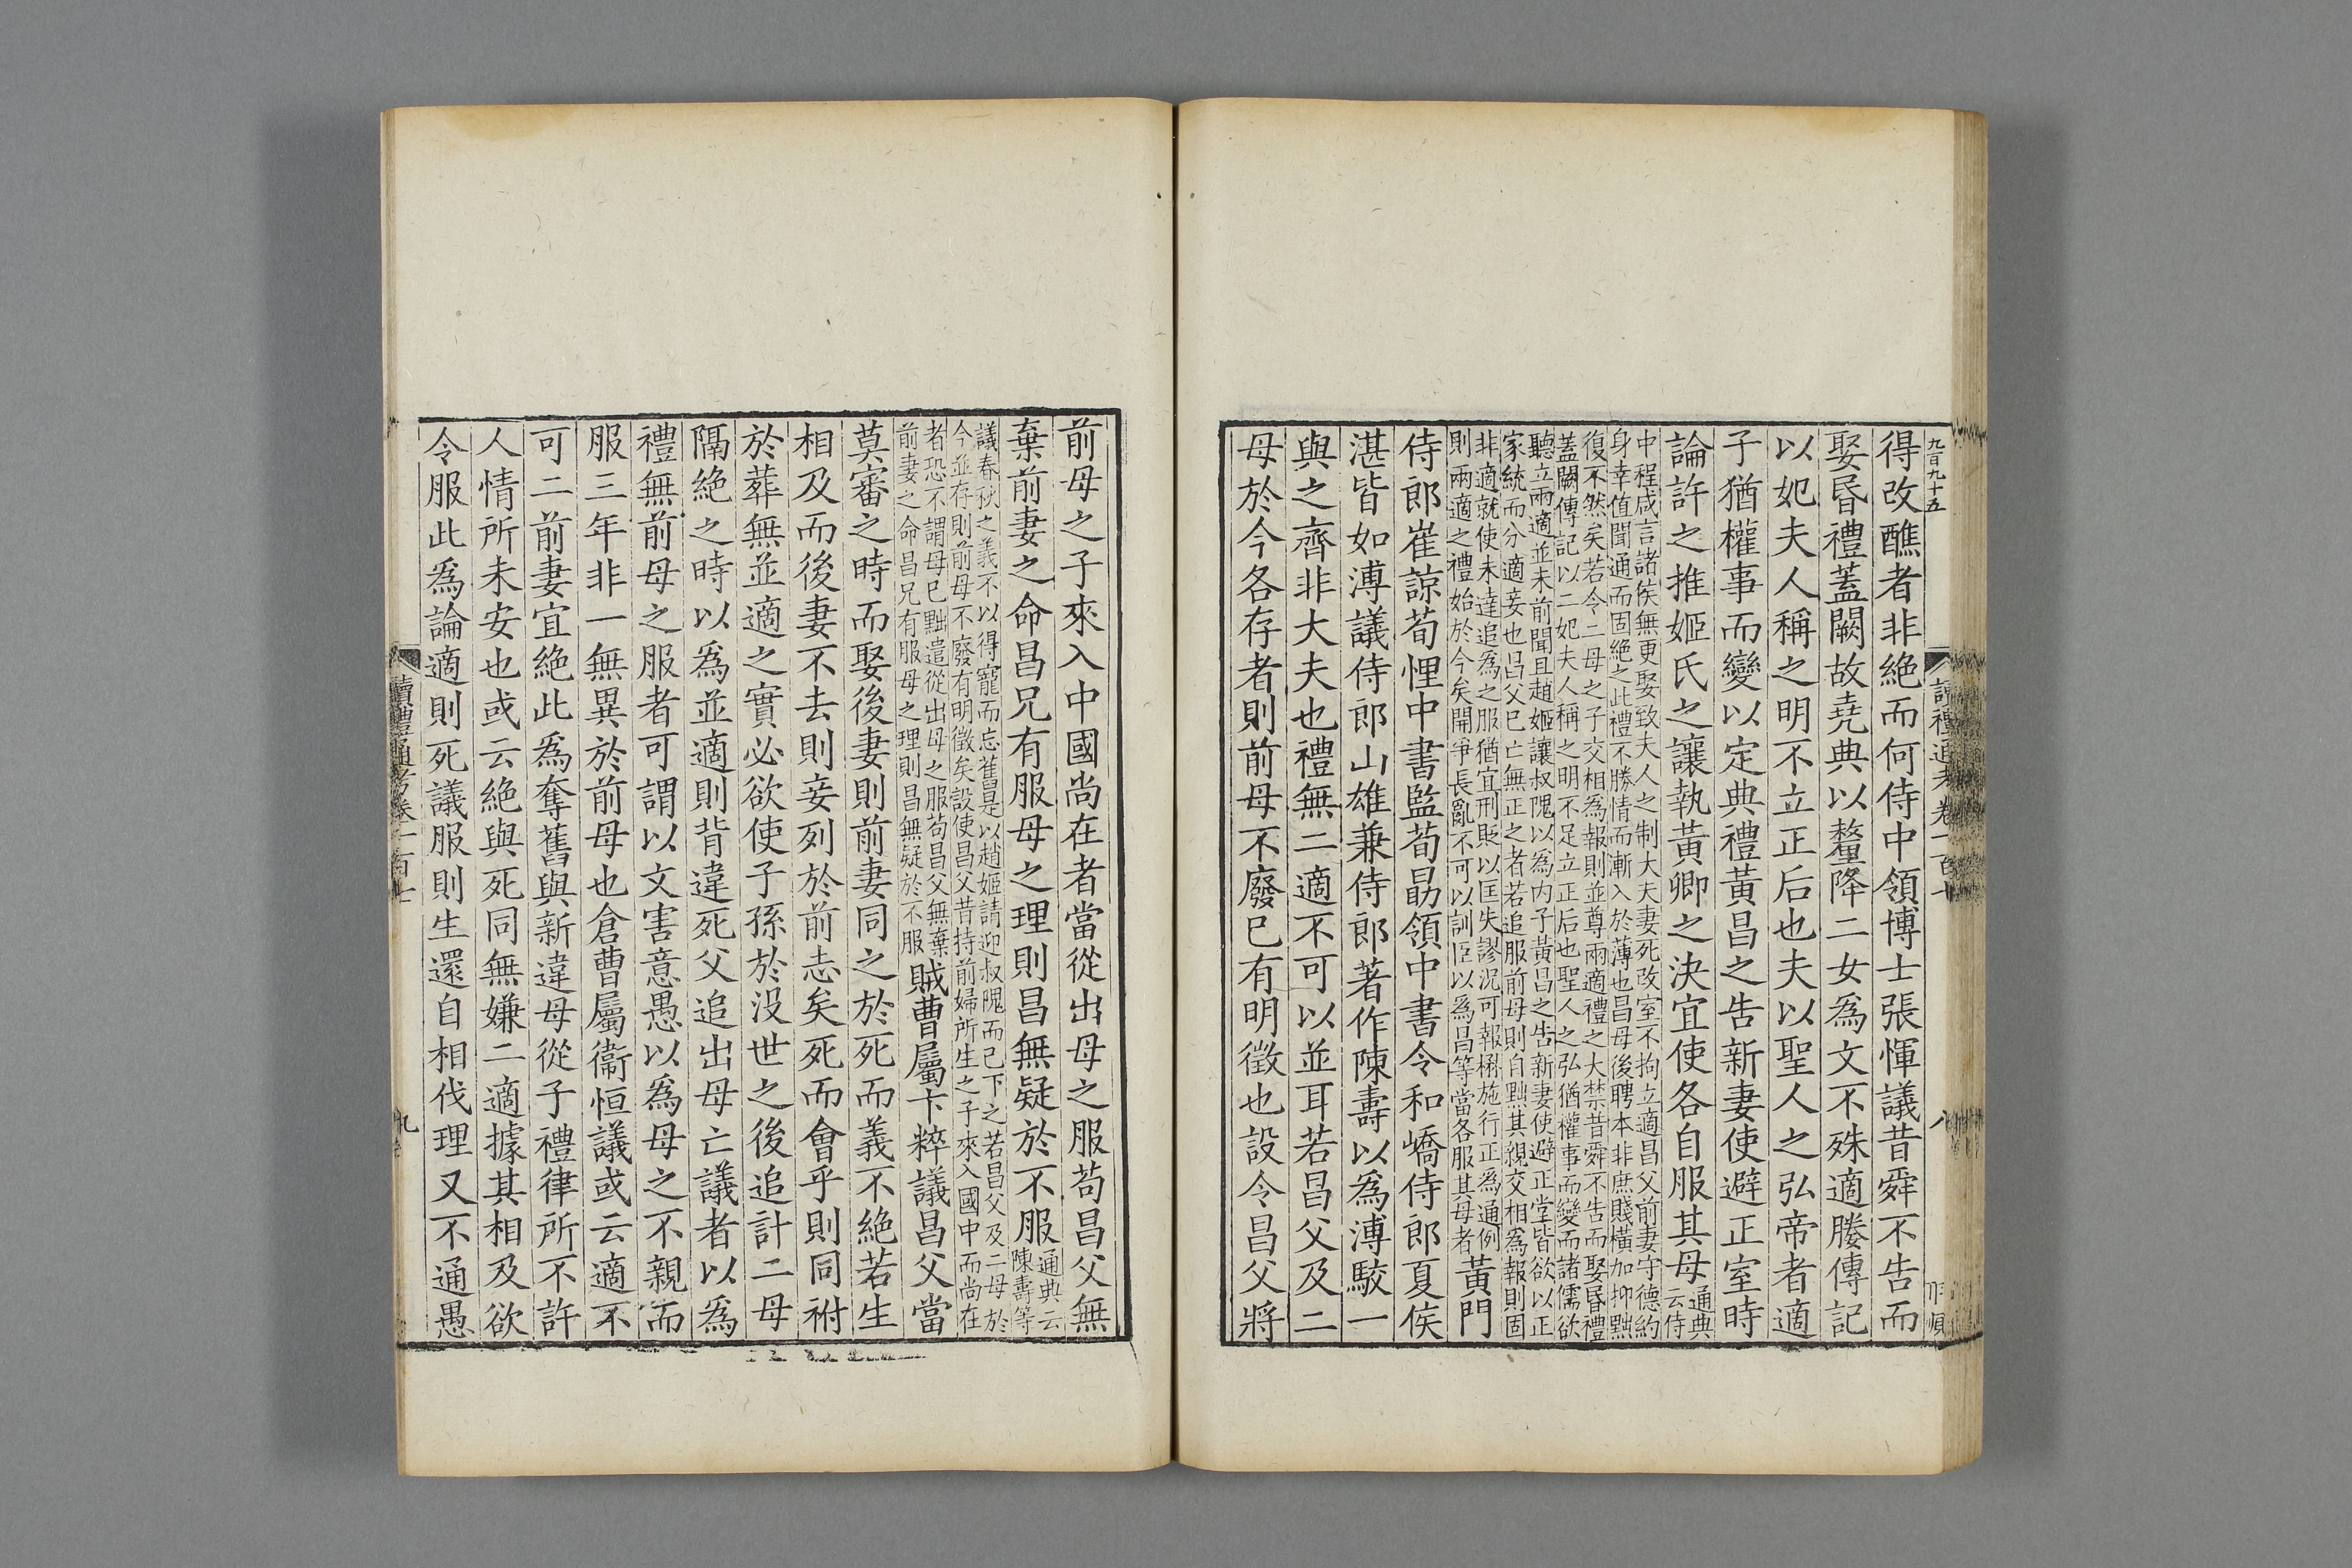 九百九十五
得改醮者非絕而何侍中領博士張惲議昔舜不告而
娶昬禮蓋闕故堯典以釐降二女爲文不殊適媵傳記
以妃夫人稱之明不立正后也夫以聖人之弘帝者適
子猶權事而變以定典禮黃昌之告新妻使避正室時
論許之推姬氏之讓執黃卿之決宜使各自服其母通典云侍
中程咸言諸侯無更娶致夫人之制大夫妻死改室不拘立適昌父前妻守德約
身幸值聞通而固絕之此禮不勝情而漸入於薄也昌母後聘本非庶賤橫加抑黜
復不然矣若令二母之子交相爲報則並尊兩適禮之大禁昔舜不告而娶昬禮
蓋闕傳記以二妃夫人稱之明不足立正后也聖人之弘猶權事而變而諸儒欲
聽立兩適並未前聞且趙姬讓叔隗以爲內子黃昌之告新妻使避正堂皆欲以正
家統而分適妾也昌父已亡無正之者若追服前母則自黜其親交相爲報則固
非適就使未達追爲之服猶宜刑貶以匡失謬況可報施行正爲通例
則兩適之禮始於今矣開爭長亂不可以訓臣以爲昌等當各服其母者黃門
侍郎崔諒荀悝中書監荀勗領中書令和嶠侍郎夏侯
湛皆如溥議侍郎山雄兼侍郎著作陳壽以爲溥駮一
與之齊非大夫也禮無二適不可以並耳若昌父及二
母於今各存者則前母不廢已有明徵也設令昌父將
讀禮通考卷一百七
八
前母之子來入中國尚在者當從出母之服苟昌父無
棄前妻之命昌兄有服母之理則昌無疑於不服通典云陳壽等
議春秋之義不以得寵而忘舊是以趙姬請迎叔隗而已下之若昌父及二母於
今並存則前母不廢有明徵矣設使昌父昔持前婦所生之子來入國中而尚在
者恐不謂母已黜遣從出母之服苟昌父無棄
前妻之命昌兄有服母之理則昌無疑於不服賊曹屬卞粹議昌父當
莫審之時而娶後妻則前妻同之於死而義不絕若生
相及而後妻不去則妾列於前志矣死而會乎則同祔
於葬無並適之實必欲使子孫於没世之後追計二母
隔絶之時以爲並適則背違死父追出母亡議者以爲
禮無前母之服者可謂以文害意愚以爲母之不親而
服三年非一無異於前母也倉曹屬衞恒議或云適不
可二前妻宜絕此爲奪舊與新違母從子禮律所不許
人情所未安也或云絕與死同無嫌二適據其相及欲
令服此爲論適則死議服則生還自相伐理又不通愚
讀禮通考卷一百七
九